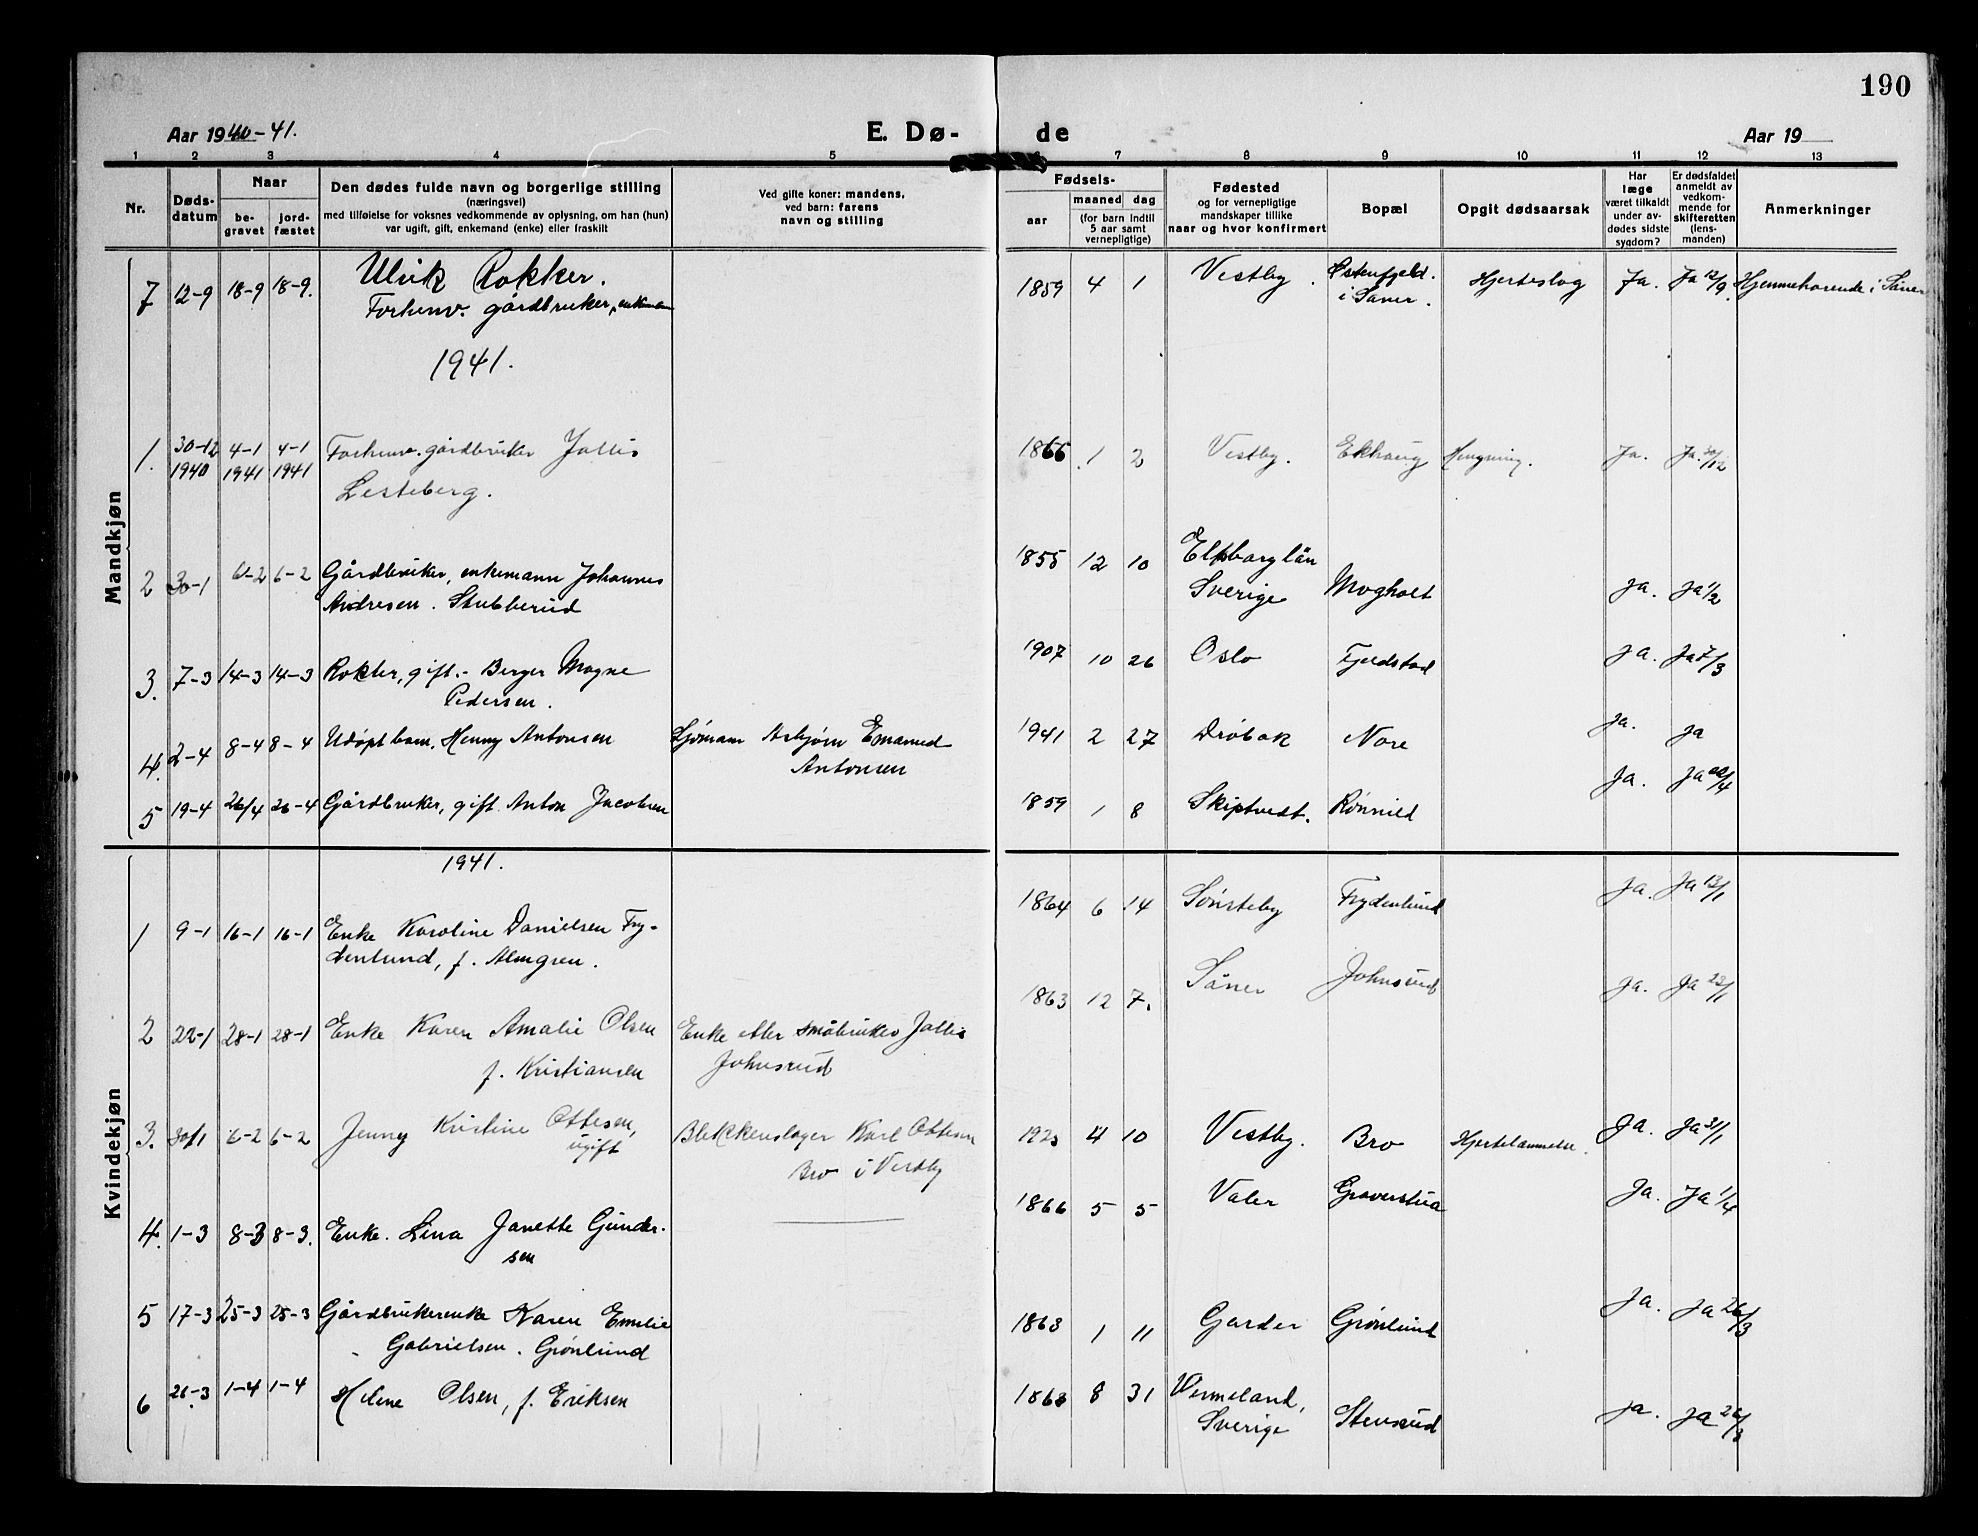 190
Aar 1940-41.
E. Dø-
de
Aar 19
1 2 3 4 5 7 8 9 10 11 12 13
Nr.
Døds-
datum
Naar
be-
gravet
jord-
fæstet
Den dødes fulde navn og borgerlige stilling
(næringsvei)
med tilføielse for voksnes vedkommende av oplysning, om han (hun)
var ugift, gift, enkemand (enke) eller fraskilt
Ved gifte koner: mandens,
ved barn: farens
navn og stilling
Fødsels-
aar
maaned dag
(for barn indtil
5 aar samt
vernepligtige)
Fødested
og for vernepligtige
mandskaper tillike
naar og hvor konfirmert
Bopæl
Opgit dødsaarsak
Har
læge
været tilkaldt
under av-
dødes sidste
sygdom?
Er dødsfaldet
anmeldt av
vedkom-
mende for
skifteretten
(lens-
manden)
Anmerkninger
Mandkjøn
7 12-9 18-9 18-9. Ulrik Rokker.
Forhenv. gårdbruker, enkem
1859 4 1 Vestby. Østenfjeld.
i Såner. Hjerteslag Ja. Ja 12/9. Hjemmehørende i Såner
1941.
1. 30-12 4-1 4-1 Forhenv. gårdbruker Jallis
1940 1941 1941 Lesteberg.
1866 1 2 Vestby. Ekhaug Hengning. Ja. Ja. 30/12
2 30-1 6-2 6-2 Gårdbruker, enkemann Johannes
Andresen. Stubberud
1855 12 10 Elfsborg län
Sverige Mogholt ja. ja 1/2
3. 7-3 14-3 14-3 Rokter, gift.- Berger Magne
Pedersen.
1907 10 26 Oslo Fjeldstad ja. Ja 7/3
4. 2-4 8-4 8-4 Udøpt barn, Henny Antonsen Sjømann Asbjørn Emanuel
Antonsen
1941 2 27 Drøbak Nore ja. ja
5 19-4 26/4 26-4 Gårdbruker, gift Anton Jacobsen
1859 1 8 Skiptvedt. Rønnild Ja. Ja 22/4
Kvindekjøn
1941.
1 9-1 16-1 16-1 Enke Karoline Danielsen Fry-
denlund, f. Almgren.
1864 6 14 Sønsteby Frydenlund ja. Ja 13/1
2 22-1 28-1 28-1 Enke Karen Amalie Olsen
f. Kristiansen
Enke etter småbruker Jallis
Johnsrud
1863 12 7. Såner Johnsrud ja. Ja 23/1
3. 30/1 6-2 6-2 Jenny Kristine Ottesen,
ugift
Blikkenslager Karl Ottesen
Bro i Vestby
1923 4 10 Vestby. Bro Hjertelammelse. Ja. Ja 31/1
4. 1-3 8-3 8-3. Enke. Lina Janette Gunder-
sen
1866 5 5 Våler Graverstua Ja. Ja 1/4
5 17-3 25-3 25-3 Gårdbrukerenke Karen Emilie
Gabrielsen. Grønlund
1863 1 11 Garder Grønlund Ja. Ja 26/3
6 26-3 1-4 1-4 Helene Olsen, f. Eriksen
1868 8 31 Vermeland,
Sverige Stensrud ja. ja 26/3